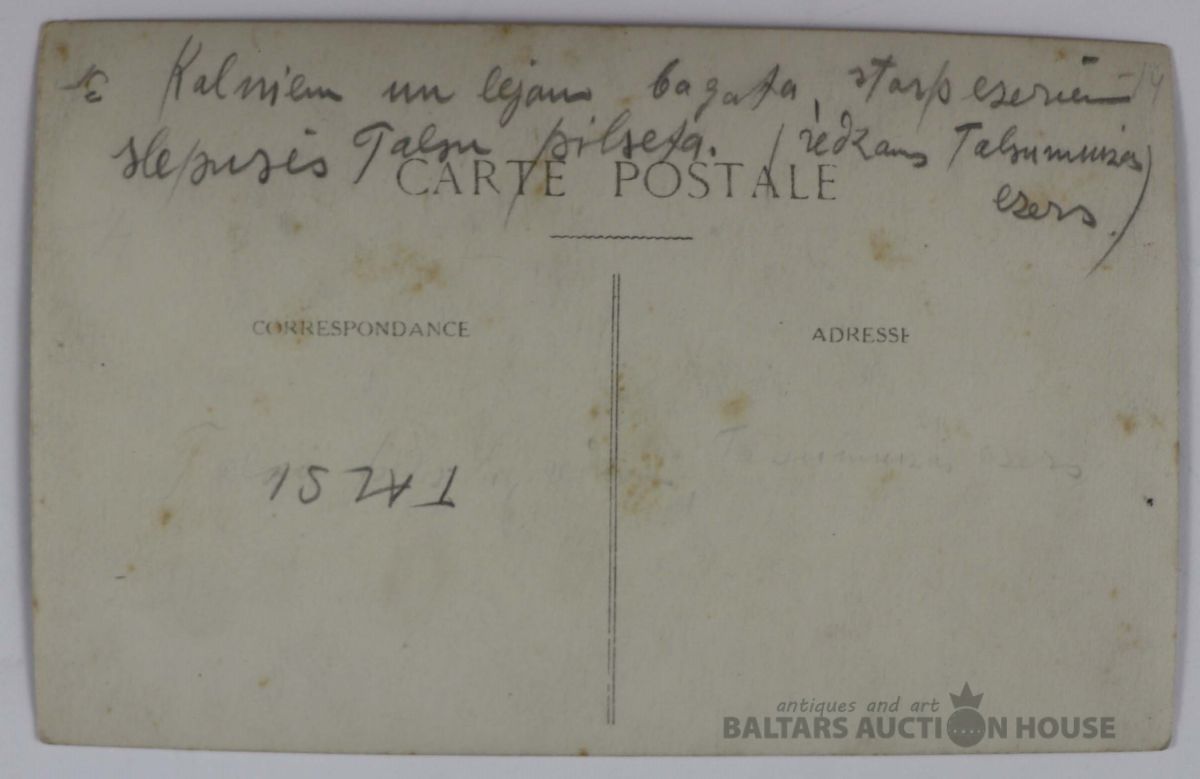 Kalniem un lejam bagata, starp ezeriem
slepusēs Talsu pilseta. (redzams Talsumuižas
ezers.)
CARTE POSTALE
CORRESPONDANCE
ADRESSE
TALSI
ezers
antiques and art
BALTARS AUCTION HOUSE